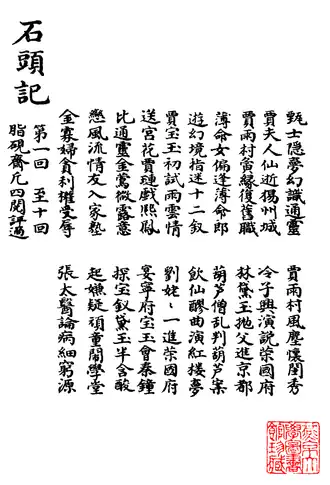 石頭記
甄士隱夢幻識通靈
賈雨村風塵懷閨秀
賈夫人仙逝揚州城
冷子興演說榮國府
賈雨村夤緣復舊職
林黛玉抛父進京都
薄命女偏逢薄命郎
葫蘆僧乱判葫蘆案
遊幻境指迷十二釵
飲仙醪曲演紅樓夢
賈宝玉初試雨雲情
劉姥〻一進榮國府
送宮花賈璉戲熙鳳
宴寧府宝玉會秦鐘
比通靈金鶯微露意
探宝釵黛玉半含酸
戀風流情友入家塾
起嫌疑頑童鬧學堂
金寡婦貪利權受辱
張太醫論病細窮源
第一回 至十回
脂硯齋凡四閱評過
燕京大
學圖書
館珍藏